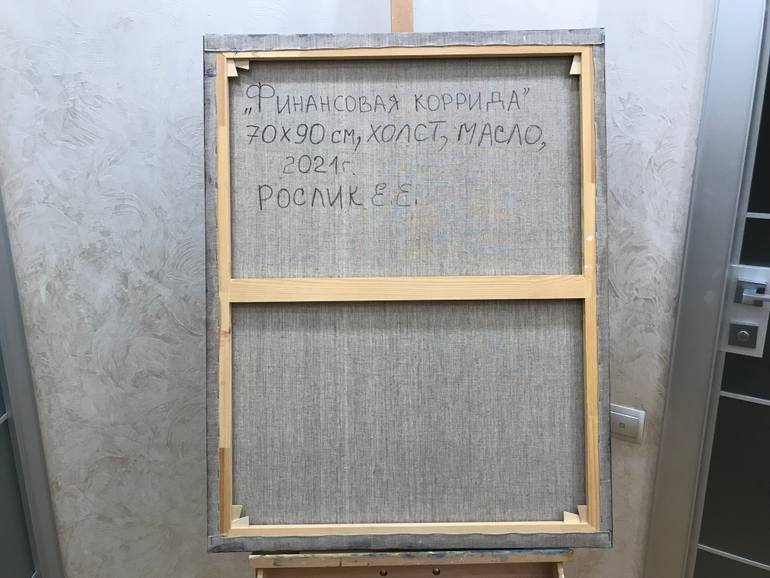 „Финансовая коррида"
70х90 см, холст, масло,
2021г.
Рослик Е.Е.